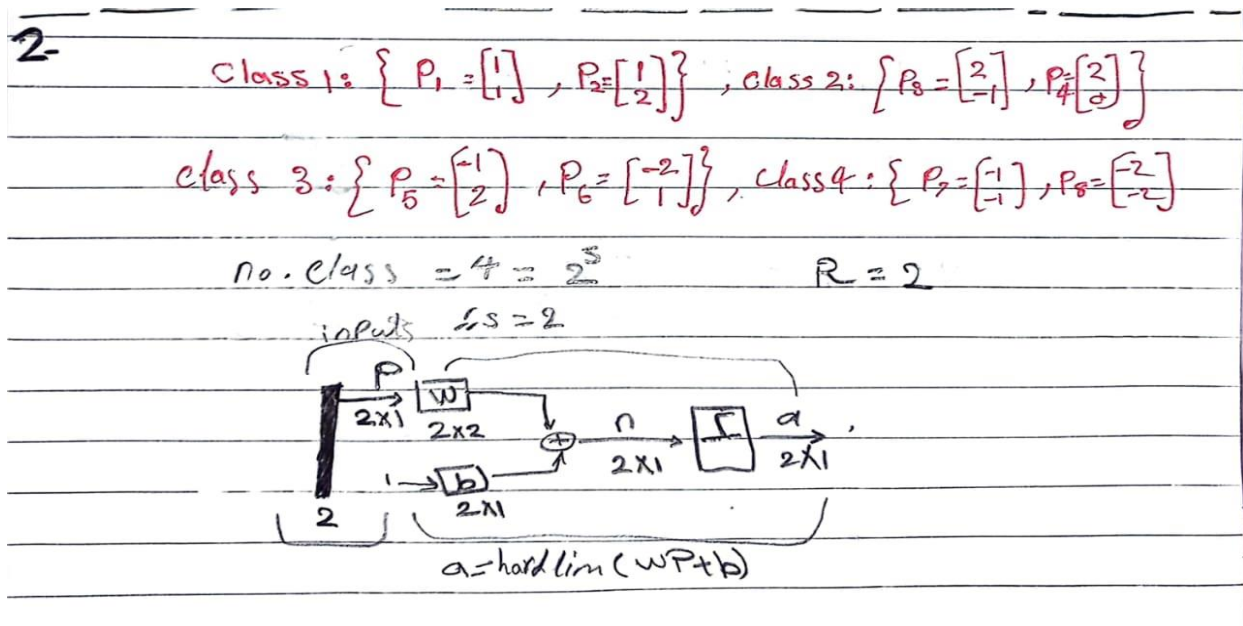 2-
Class 1: { P1 = [1 1], P2 = [1 2]}, class 2: {P3 = [2 -1], P4 = [2 0]}
class 3: { P5 = [-1 2], P6 = [-2 1]}, class 4: { P7 = [-1 -1], P8 = [-2 -2]
no. class = 4 = 2^s R = 2
inputs ∴ s = 2
P W
2x1 2x2
+ n a
2x1 2x1
1 b
2 2x1
a = hardlim (WP+b)